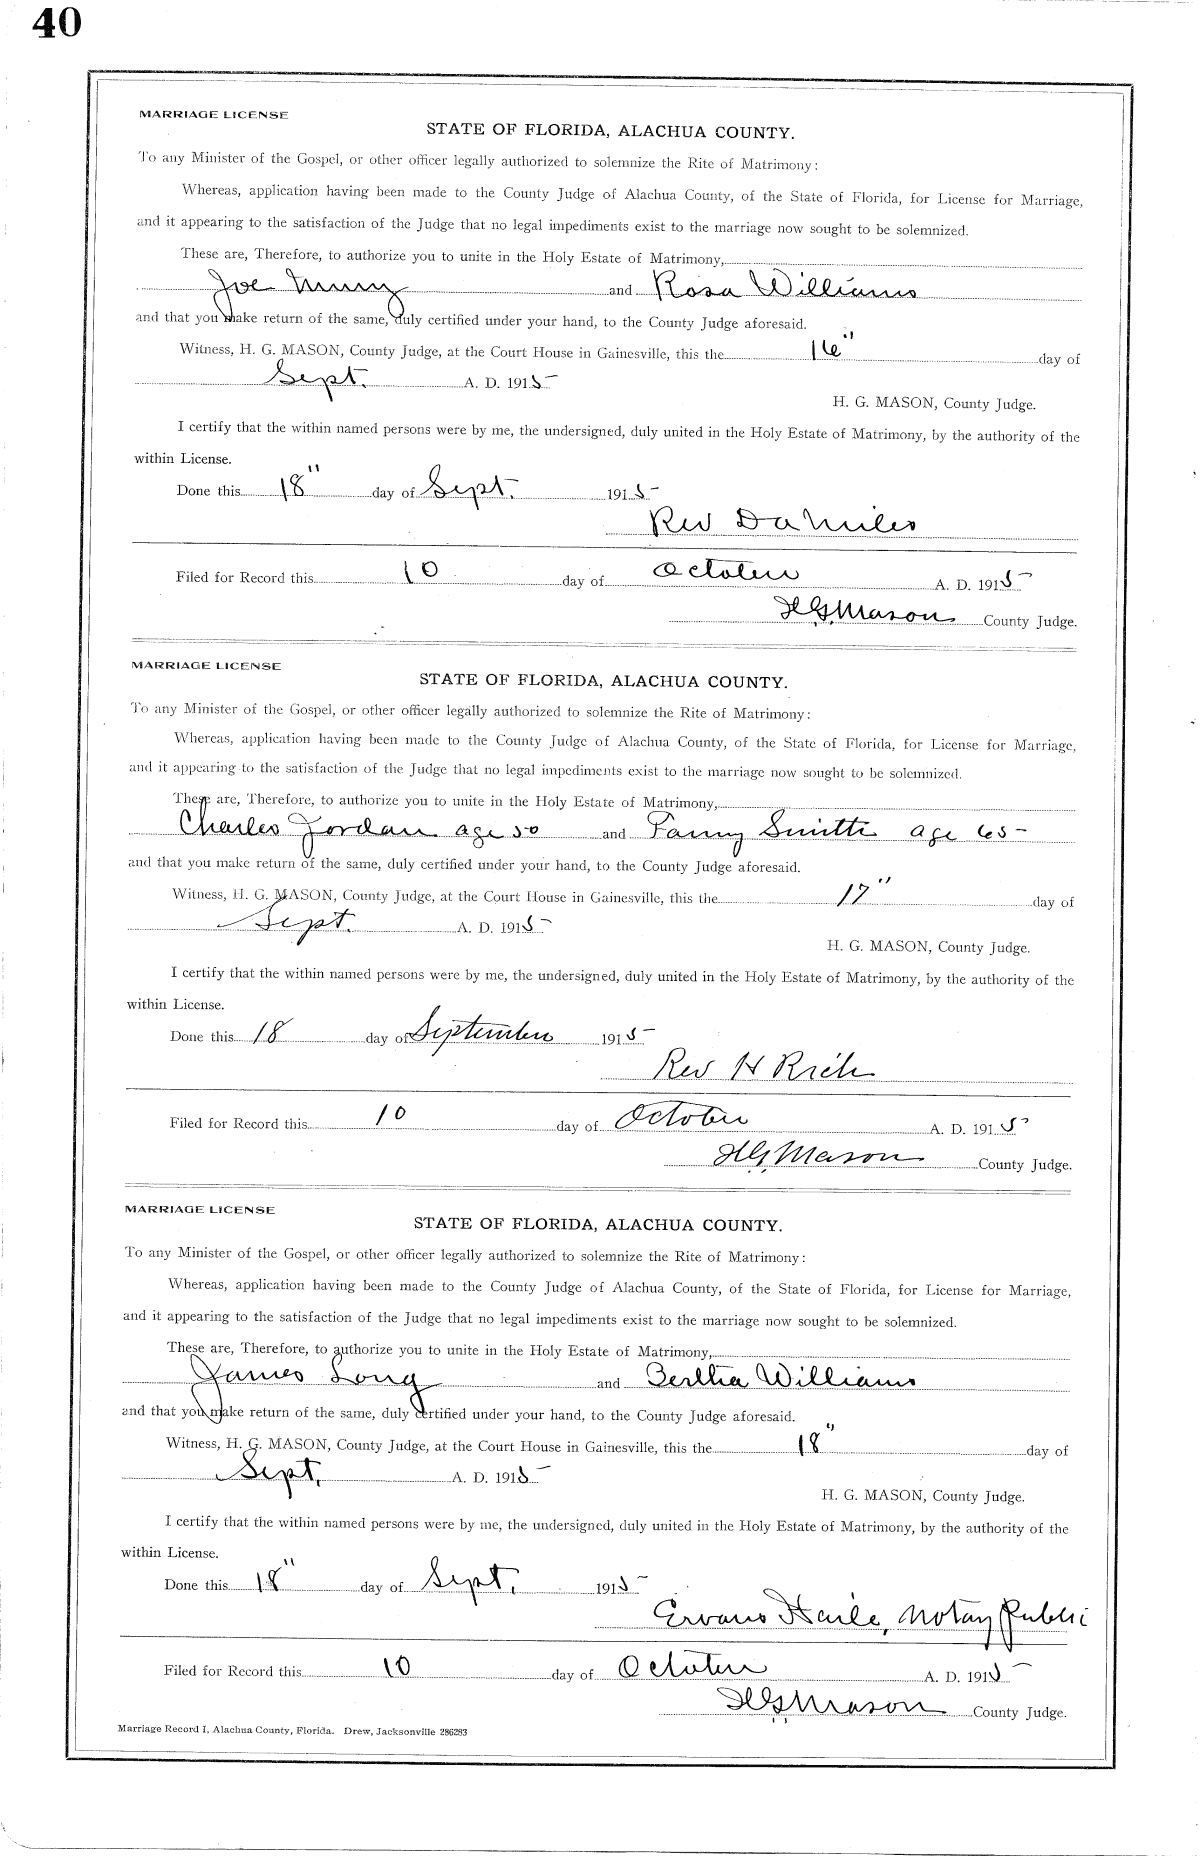 40
MARRIAGE LICENSE
STATE OF FLORIDA, ALACHUA COUNTY.
To any Minister of the Gospel, or other officer legally authorized to solemnize the Rite of Matrimony:
Whereas, application having been made to the County Judge of Alachua County, of the State of Florida, for License for Marriage,
and it appearing to the satisfaction of the Judge that no legal impediments exist to the marriage now sought to be solemnized.
These are, Therefore, to authorize you to unite in the Holy Estate of Matrimony,
Joe and Rosa Williams
and that you make return of the same, duly certified under your hand, to the County Judge aforesaid.
Witness, H. G. MASON, County Judge, at the Court House in Gainesville, this the 16" day of
Sept. A. D. 1915
H. G. MASON, County Judge.
I certify that the within named persons were by me, the undersigned, duly united in the Holy Estate of Matrimony, by the authority of the
within License.
Done this 18" day of Sept. 1915
Rev D a Miles
Filed for Record this 10 day of October A. D. 1915
H.G. Mason County Judge.
MARRIAGE LICENSE
STATE OF FLORIDA, ALACHUA COUNTY.
To any Minister of the Gospel, or other officer legally authorized to solemnize the Rite of Matrimony:
Whereas, application having been made to the County Judge of Alachua County, of the State of Florida, for License for Marriage,
and it appearing to the satisfaction of the Judge that no legal impediments exist to the marriage now sought to be solemnized.
These are, Therefore, to authorize you to unite in the Holy Estate of Matrimony,
Charles Jordan age 50 and Fanny Smith age 65
and that you make return of the same, duly certified under your hand, to the County Judge aforesaid.
Witness, H. G. MASON, County Judge, at the Court House in Gainesville, this the 17" day of
Sept. A. D. 1915
H. G. MASON, County Judge.
I certify that the within named persons were by me, the undersigned, duly united in the Holy Estate of Matrimony, by the authority of the
within License.
Done this 18 day of September 1915
Rev H Rich
Filed for Record this 10 day of October A. D. 1915
H.G. Mason County Judge.
MARRIAGE LICENSE
STATE OF FLORIDA, ALACHUA COUNTY.
To any Minister of the Gospel, or other officer legally authorized to solemnize the Rite of Matrimony:
Whereas, application having been made to the County Judge of Alachua County, of the State of Florida, for License for Marriage,
and it appearing to the satisfaction of the Judge that no legal impediments exist to the marriage now sought to be solemnized.
These are, Therefore, to authorize you to unite in the Holy Estate of Matrimony,
James Long and Bertha Williams
and that you make return of the same, duly certified under your hand, to the County Judge aforesaid.
Witness, H. G. MASON, County Judge, at the Court House in Gainesville, this the 18" day of
Sept. A. D. 1915
H. G. MASON, County Judge.
I certify that the within named persons were by me, the undersigned, duly united in the Holy Estate of Matrimony, by the authority of the
within License.
Done this 18" day of Sept. 1915
Evans Haile, Notary Public
Filed for Record this 10 day of October A. D. 1915
H.G. Mason County Judge.
Marriage Record I, Alachua County, Florida. Drew, Jacksonville 286283